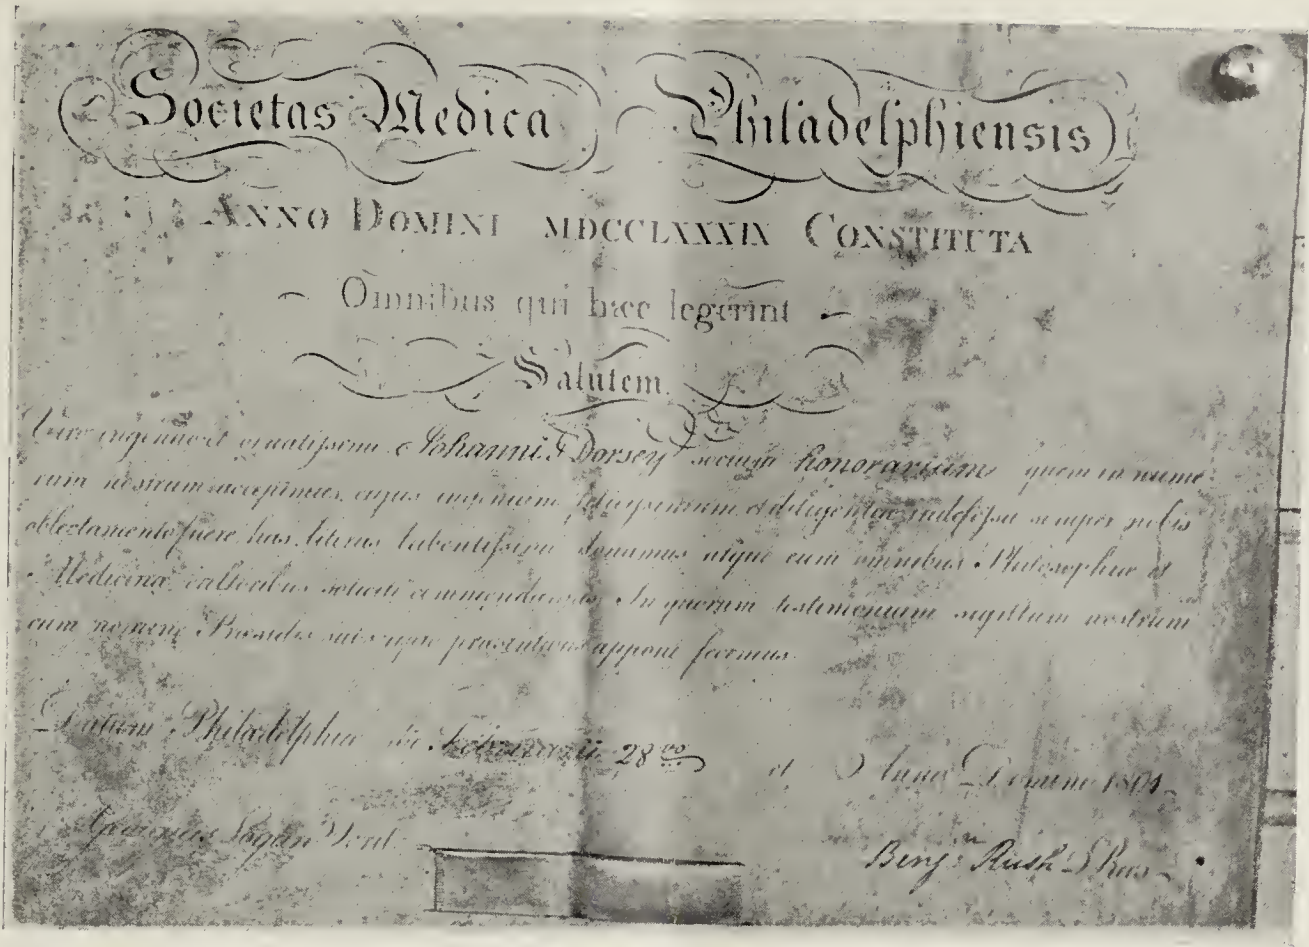 Societas Medica Philadelphiensis
ANNO DOMINI MDCCLXXXIX CONSTITUTA
Omnibus qui hæc legerint
Salutem
Viro ingenuo et ornatissimo Johanni S Dorsey socium honorarium quem in nume
rum nostrum accepimus, cujus ingenium felicissimum et diligentia indefessa semper nobis
oblectamento fuere, has literas lubentissimi donamus atque eum omnibus Philosophiæ et
Medicinæ cultoribus commendamus. In quorum testimonium sigillum nostrum
cum nomine Præsidis apponi fecimus.
Datum Philadelphiæ die Februarii 28vo et Anno Domini
Benjn Rush